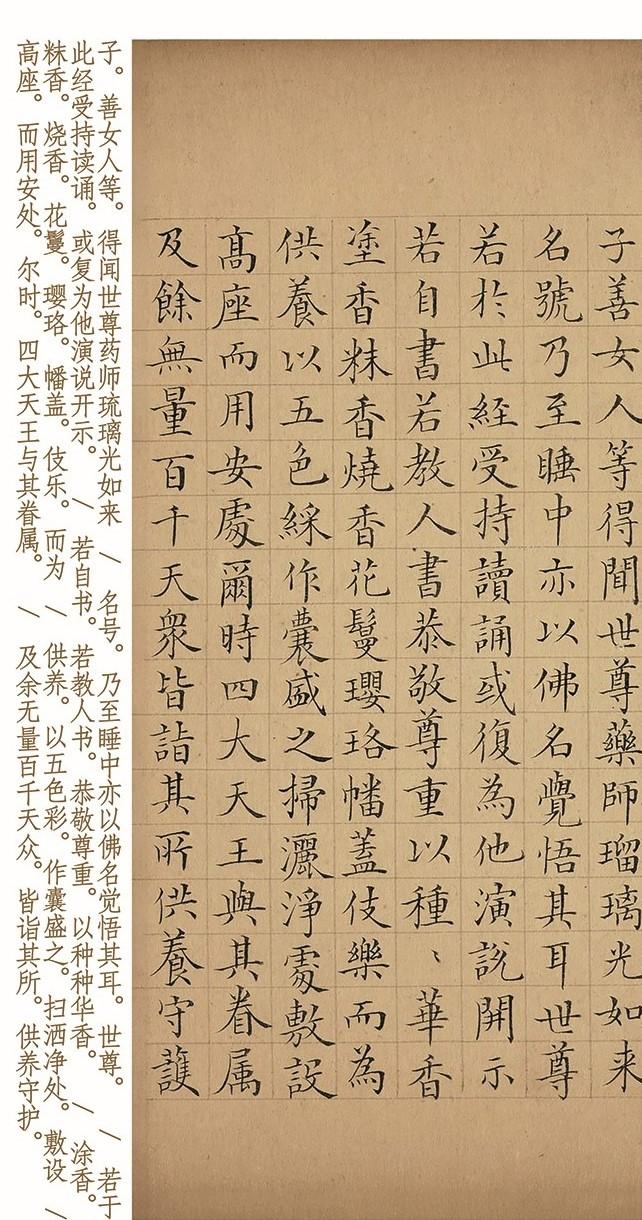 子善女人等得聞世尊藥師瑠璃光如来
名號乃至睡中亦以佛名覺悟其耳世尊
若於此経受持讀誦或復為他演說開示
若自書若教人書恭敬尊重以種〻華香
塗香粖香燒香花鬘瓔珞幡蓋伎樂而為
供養以五色綵作囊盛之掃灑淨處敷設
髙座而用安處爾時四大天王與其眷属
及餘無量百千天衆皆詣其所供養守護
子。善女人等。得闻世尊药师琉璃光如来 / 名号。乃至睡中亦以佛名觉悟其耳。世尊。 / 若于
此经受持读诵。或复为他演说开示。 / 若自书。若教人书。恭敬尊重。以种种华香。 / 涂香。
粖香。烧香。花鬘。璎珞。幡盖。伎乐。而为 / 供养。以五色彩。作囊盛之。扫洒净处。敷设 /
高座。而用安处。尔时。四大天王与其眷属。 / 及余无量百千天众。皆诣其所。供养守护。